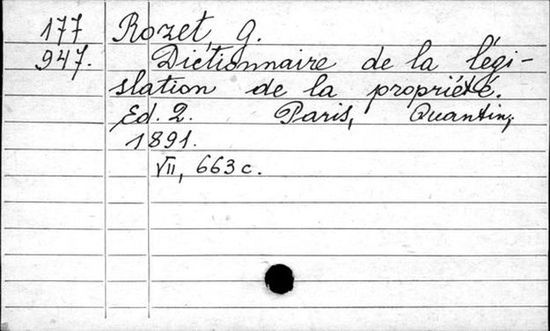 177 Rozet, G.
947. Dictionnaire de la légi-
slation de la propriété.
Ed. 2. Paris, Quantin,
1891.
VII, 663 c.